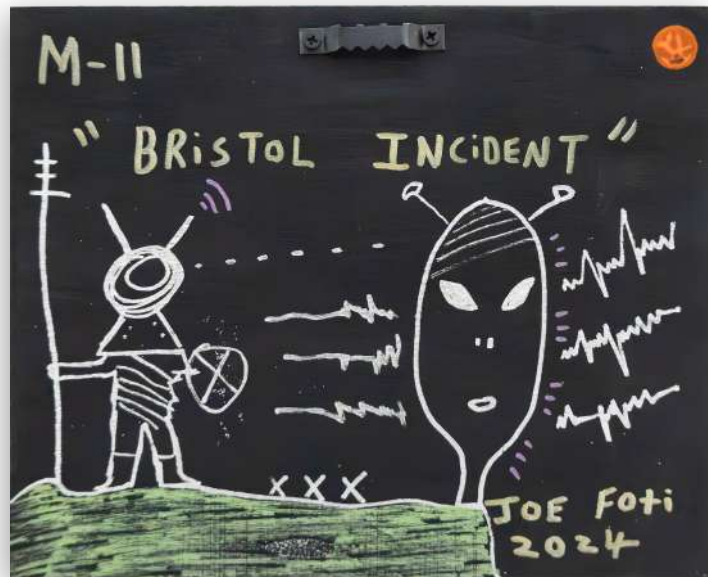 M-11
" BRiSTOL INCiDENT "
X X X
JOE FOTi
2024